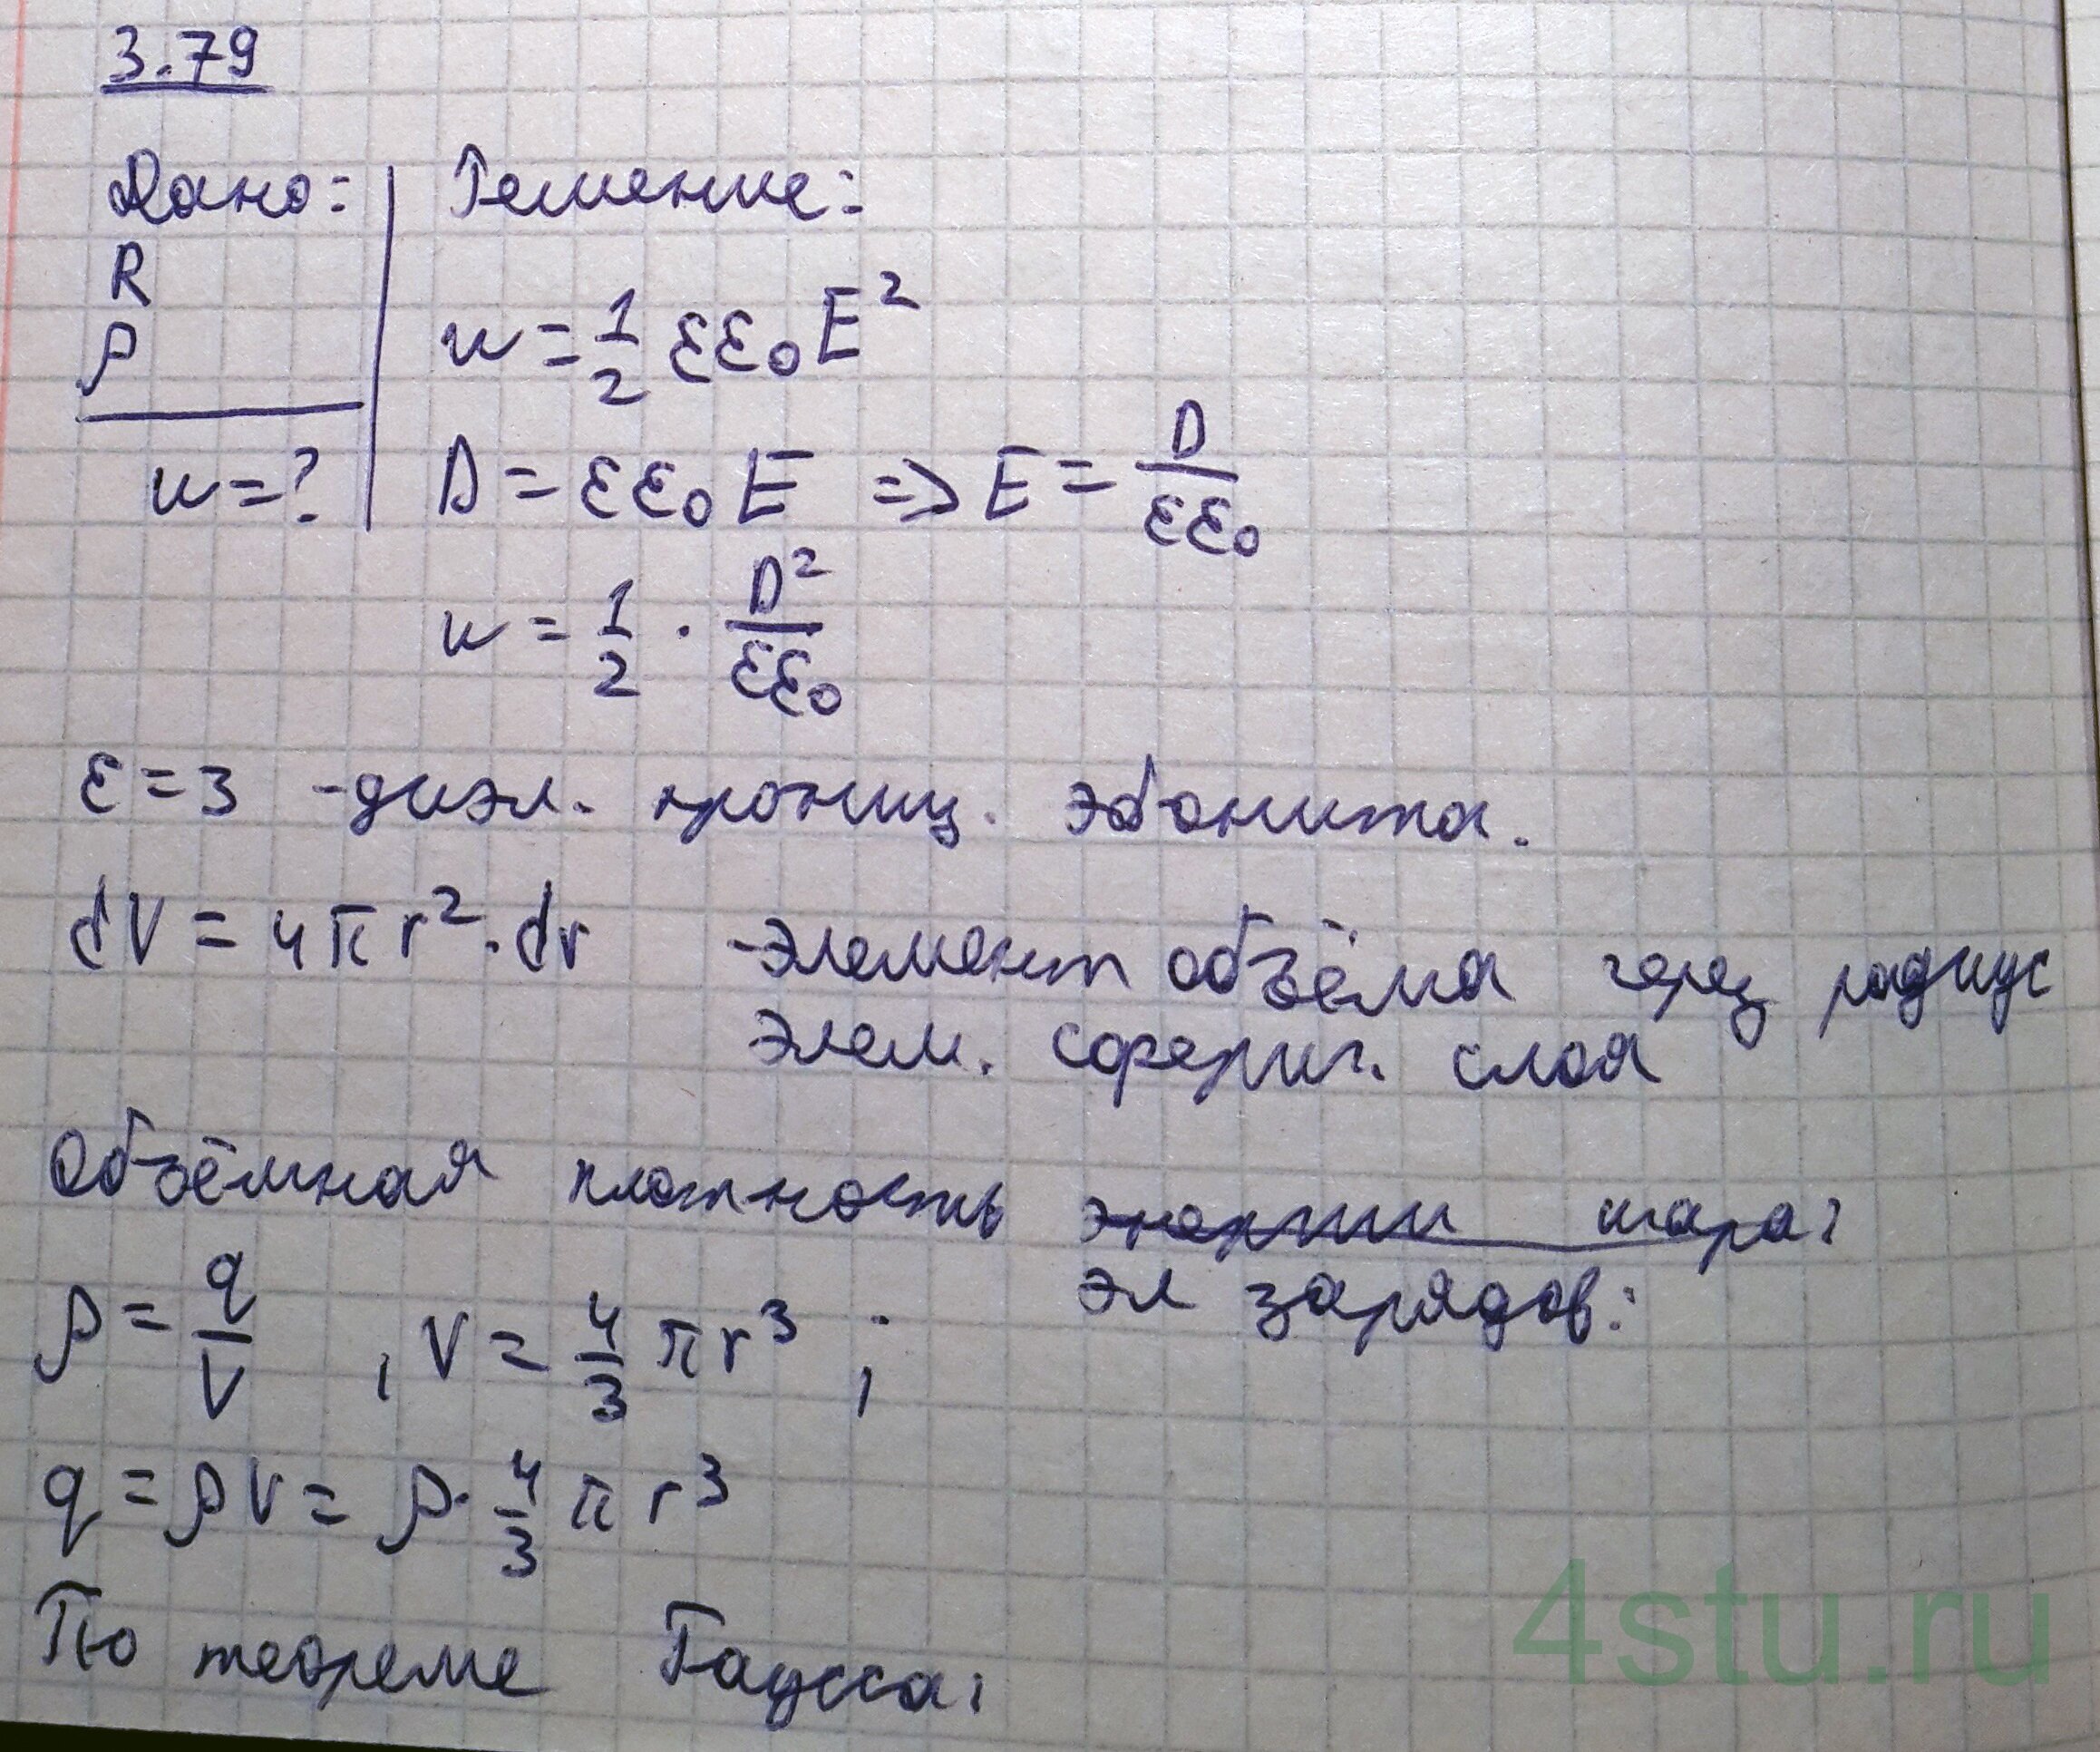 3.79
Дано: Решение:
R
ρ
u=?
u = 1/2 εε₀E²
D = εε₀E => E = D/εε₀
u = 1/2 · D²/εε₀
ε = 3 - диэл. прониц. эбонита.
dV = 4πr²·dr - элемент объёма через радиус
элем. сферич. слоя
Объёмная плотность энергии шара:
эл зарядов:
ρ = q/V , V = 4/3 πr³ ;
q = ρV = ρ· 4/3 πr³
По теореме Гаусса:
4stu.ru